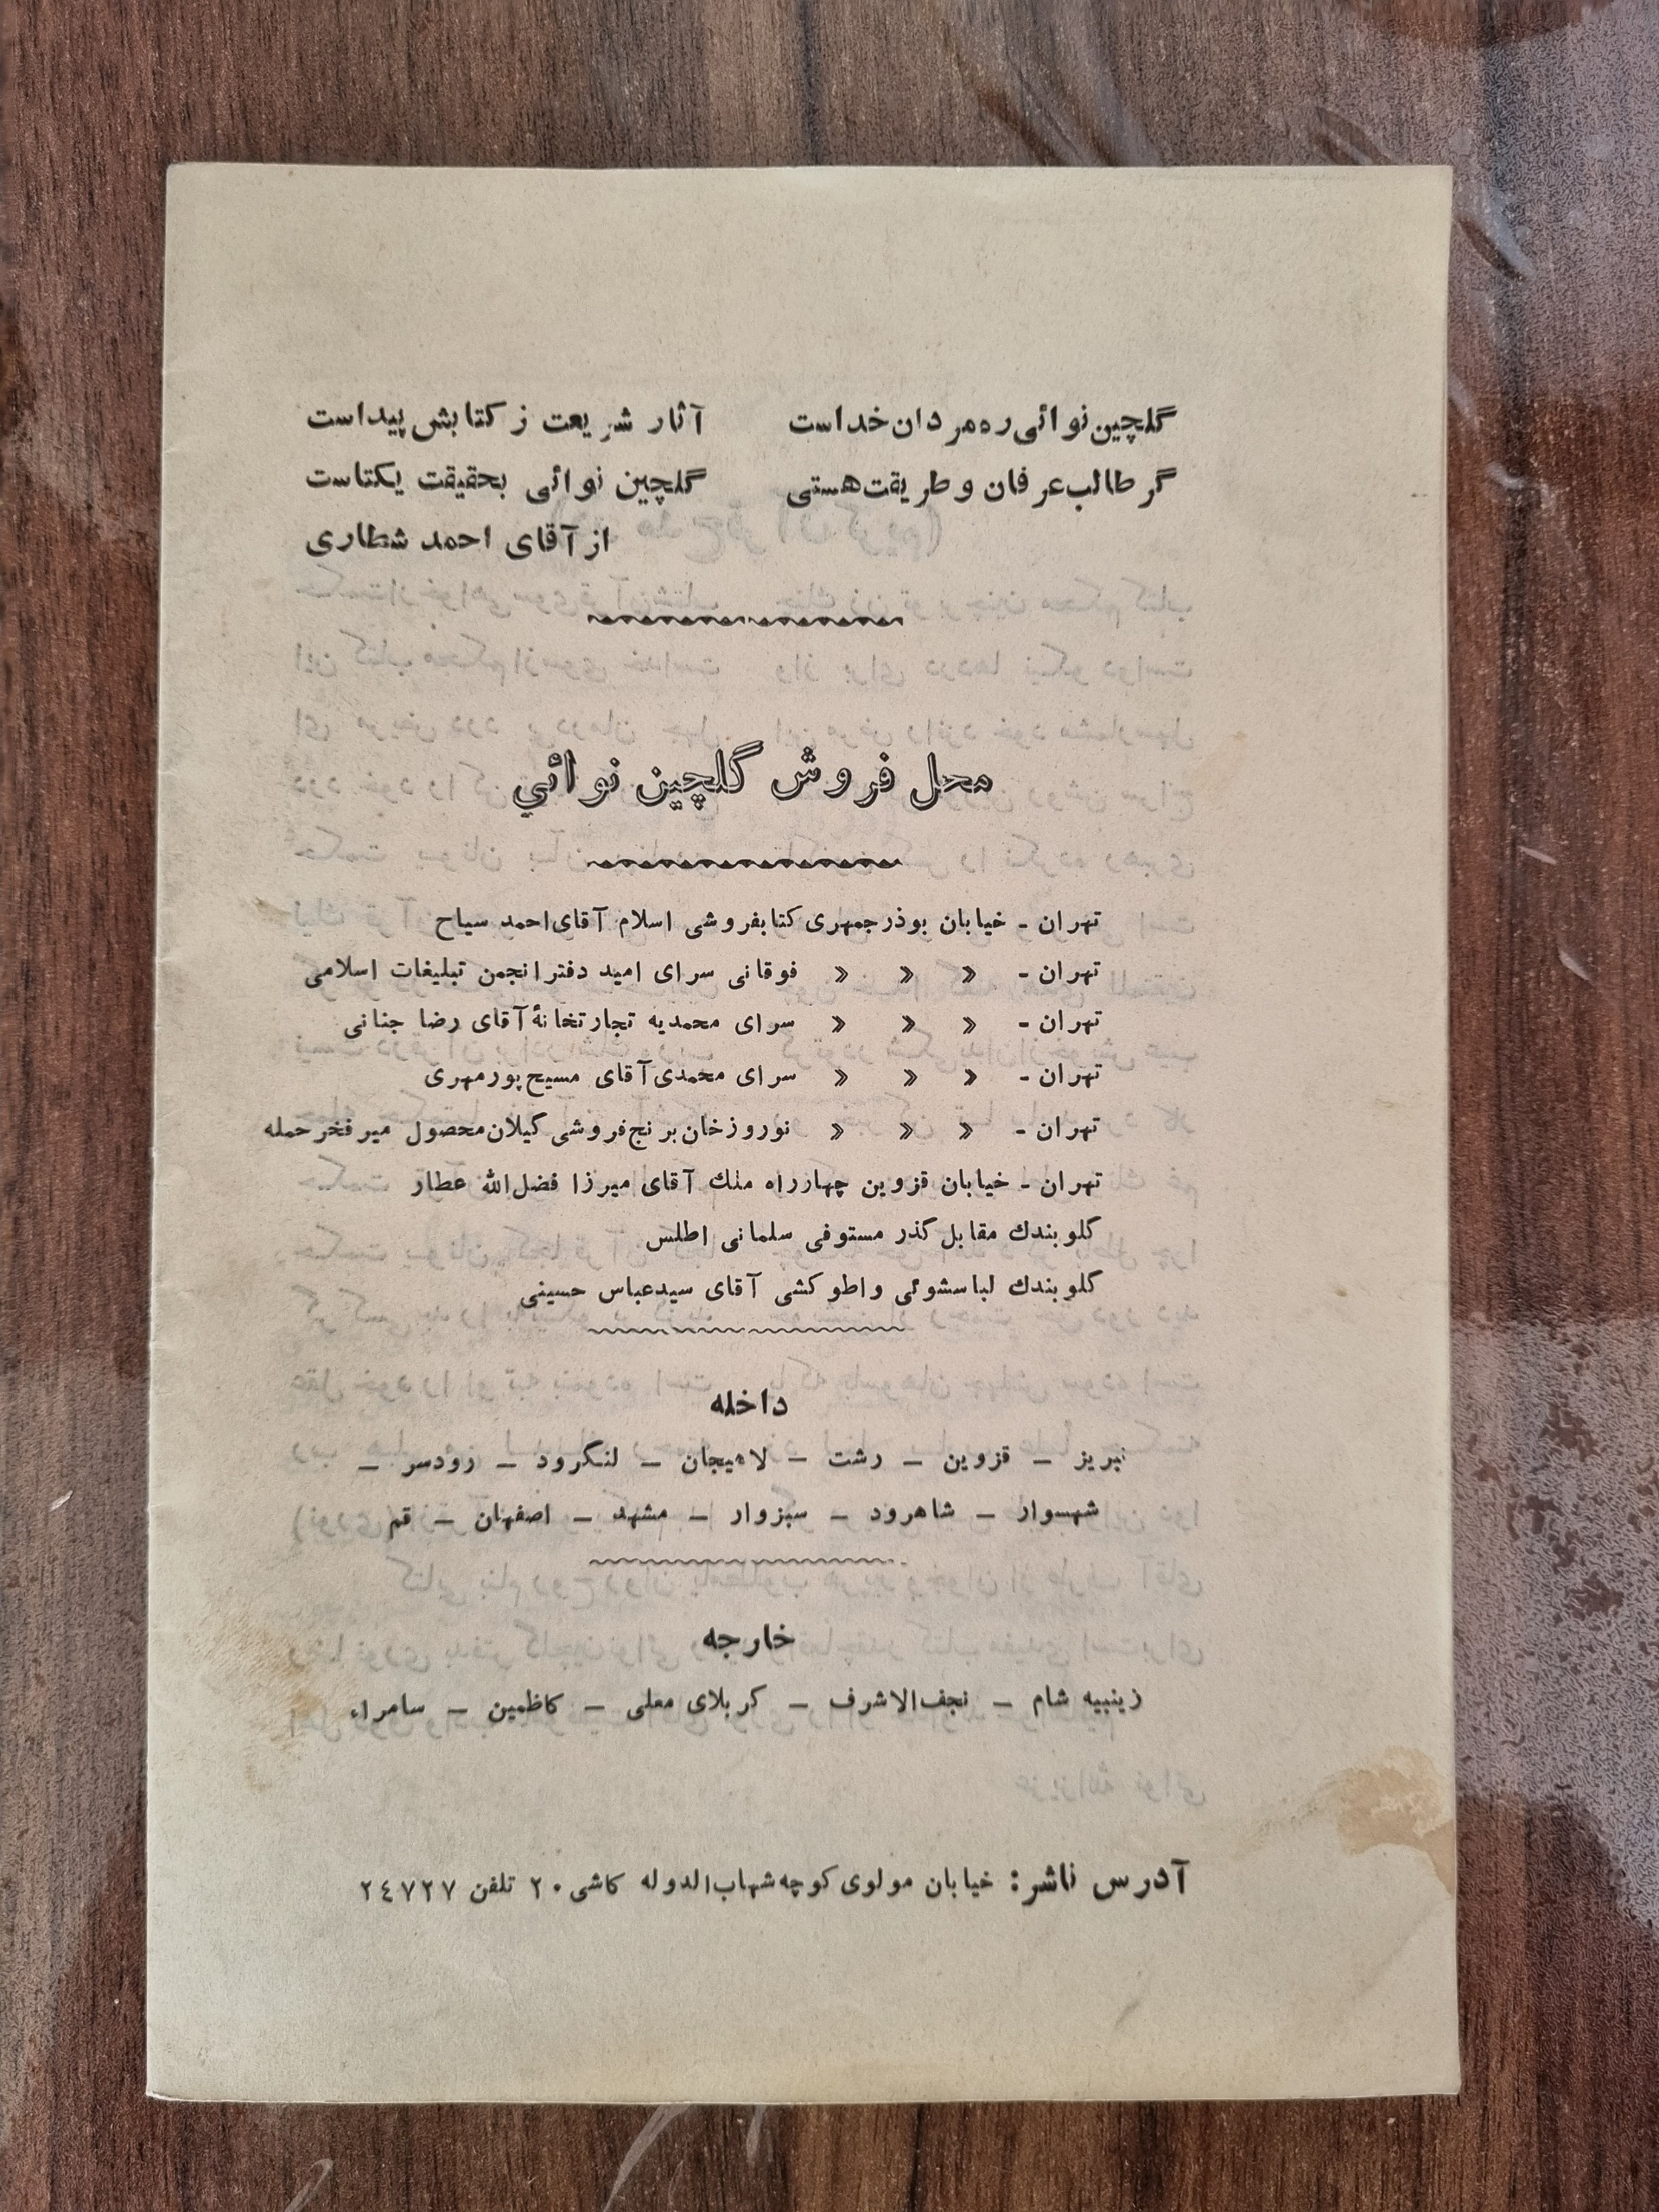 گلچین نوائی ره مردان خداست آثار شریعت ز کتابش پیداست
گر طالب عرفان و طریقت هستی گلچین نوائی بحقیقت یکتاست
از آقای احمد شطاری
محل فروش گلچین نوائي
تهران - خیابان بوذرجمهری کتابفروشی اسلام آقای احمد سیاح
تهران - » » » فوقانی سرای امید دفتر انجمن تبلیغات اسلامی
تهران - » » » سرای محمدیه تجارتخانهٔ آقای رضا جنانی
تهران - » » » سرای محمدی آقای مسیح پورمهری
تهران - » » » نوروزخان برنج فروشی گیلان محصول میر فخر حمله
تهران - خیابان قزوین چهارراه ملك آقای میرزا فضل الله عطار
گلوبندك مقابل گذر مستوفی سلمانی اطلس
گلوبندك لباسشوئی واطو کشی آقای سیدعباس حسینی
داخله
تبریز – قزوین – رشت – لاهیجان – لنگرود – رودسر –
شهسوار – شاهرود – سبزوار – مشهد – اصفهان – قم
خارجه
زینبیه شام – نجف الاشرف – کربلای معلی – کاظمین – سامراء
آدرس ناشر: خیابان مولوی کوچه شهاب الدوله کاشی ۲۰ تلفن ۲٤۷۲۷